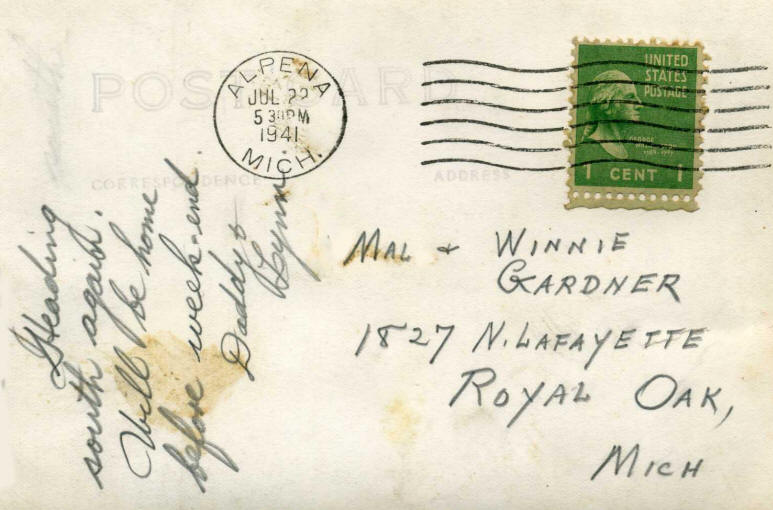 POST CARD
ALPENA
JUL 22
5 30 PM
1941
MICH.
UNITED
STATES
POSTAGE
GEORGE
WASHINGTON
1 CENT 1
CORRESPONDENCE
ADDRESS
Heading
south again.
Will be home
before week-end
Daddy &
Lynn
MAL + WINNIE
GARDNER
1827 N. LAFAYETTE
ROYAL OAK,
MICH